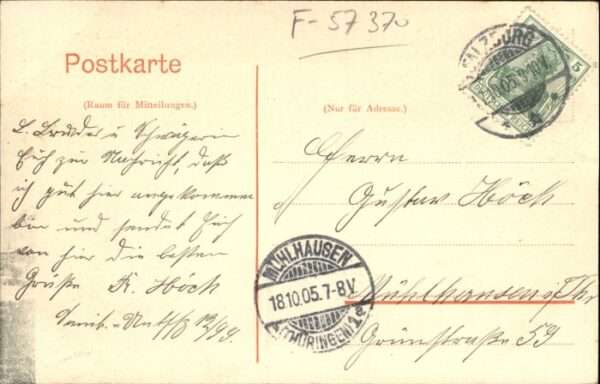 F-57370
Postkarte
(Raum für Mitteilungen.)
(Nur für Adresse.)
SALZBURG
5
L. Bruder u Schwägerin
Euch zur Nachricht, daß
ich gut hier angekommen
bin und sendet Euch
von hier die besten
Grüße K. Höch
Herrn
Gustav Höch
Mühlhausen i/Thr
Grünstraße 59
MÜHLHAUSEN
18.10.05.7-8V.
(THÜRINGEN) 1e